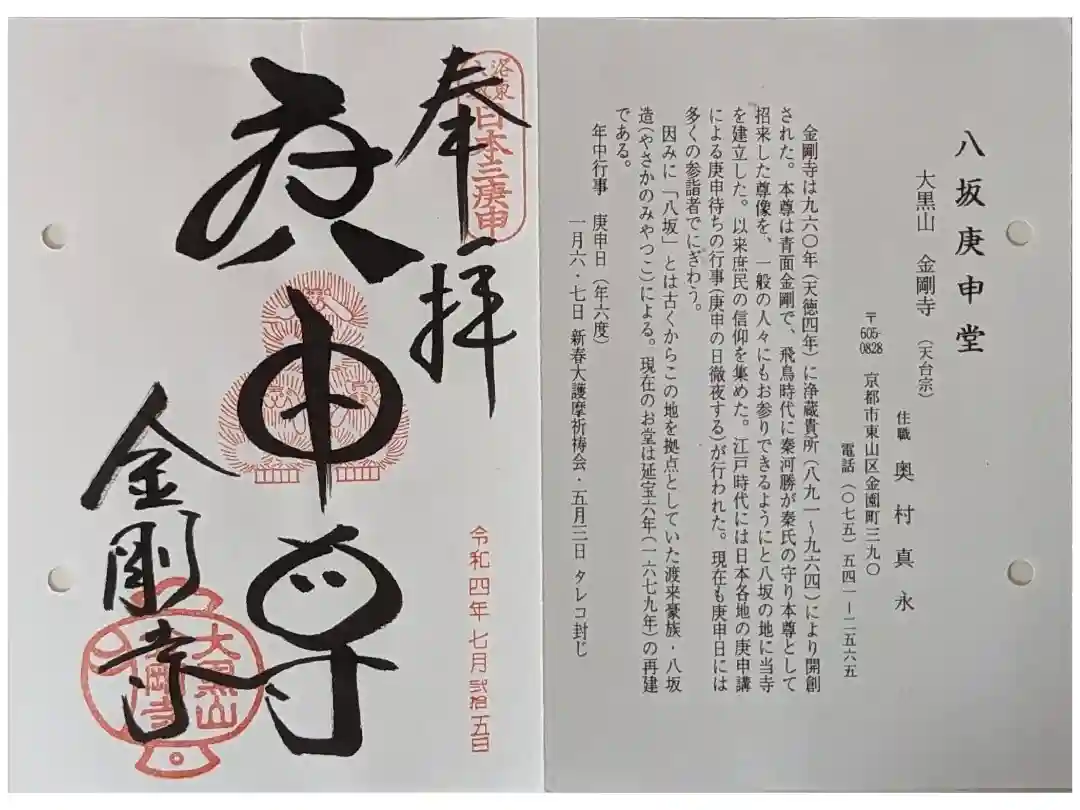 八坂庚申堂
大黒山 金剛寺 (天台宗)
住職 奥村真永
〒605-0828 京都市東山区金園町三九〇
電話(〇七五)五四一ー二五六五
金剛寺は九六〇年(天徳四年)に浄蔵貴所(八九一〜九六四)により開創
された。本尊は青面金剛で、飛鳥時代に秦河勝が秦氏の守り本尊として
招来した尊像を、一般の人々にもお参りできるようにと八坂の地に当寺
を建立した。以来庶民の信仰を集めた。江戸時代には日本各地の庚申講
による庚申待ちの行事(庚申の日徹夜する)が行われた。現在も庚申日には
多くの参詣者でにぎわう。
因みに「八坂」とは古くからこの地を拠点としていた渡来豪族・八坂
造(やさかのみやつこ)による。現在のお堂は延宝六年(一六七九年)の再建
である。
年中行事 庚申日(年六度)
一月六・七日 新春大護摩祈祷会・五月三日 タレコ封じ
奉拝
洛東
日本三庚申
庚申尊
令和四年七月弐拾五日
金剛寺
大黒山
金剛寺